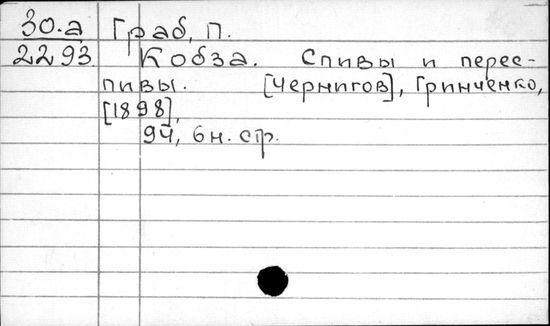 30.а Граб, П.
2293 Кобза. Спивы и перес-
пивы. [Чернигов], Гринченко,
[1898],
94, 6 н. стр.